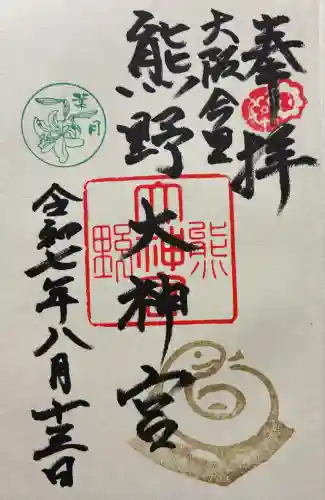 奉拝
大阪今里
熊野大神宮
令和七年八月十三日
葉月
熊野大神宮